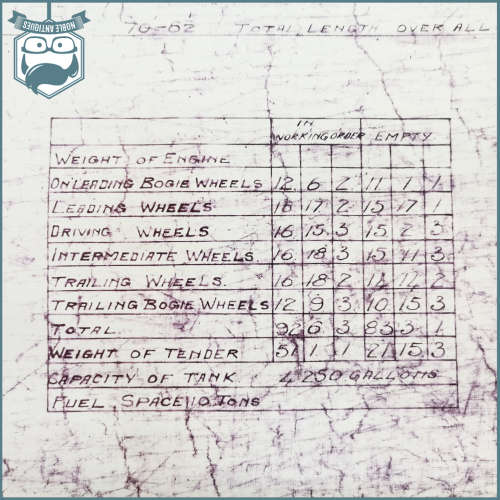 NOBLE ANTIQUES
70-62 TOTAL LENGTH OVER ALL
IN WORKING ORDER EMPTY
WEIGHT OF ENGINE
ON LEADING BOGIE WHEELS 12 6 2 11 1 1
LEADING WHEELS 16 17 2 15 17 1
DRIVING WHEELS 16 15 3 15 2 3
INTERMEDIATE WHEELS 16 18 3 15 11 3
TRAILING WHEELS. 16 18 2 14 14 2
TRAILING BOGIE WHEELS 12 9 3 10 15 3
TOTAL 92 6 3 83 3 1
WEIGHT OF TENDER 51 1 1 21 15 3
CAPACITY OF TANK 4 250 GALLONS
FUEL SPACE 10 TONS